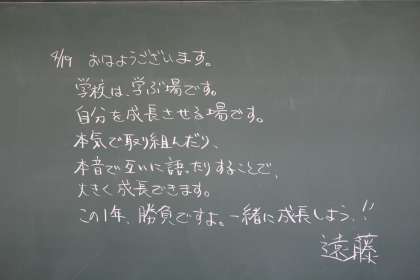 4/19 おはようございます。
学校は、学ぶ場です。
自分を成長させる場です。
本気で取り組んだり、
本音で互いに語ったりすることで、
大きく成長できます。
この1年、勝負ですよ。一緒に成長しよう!!
遠藤